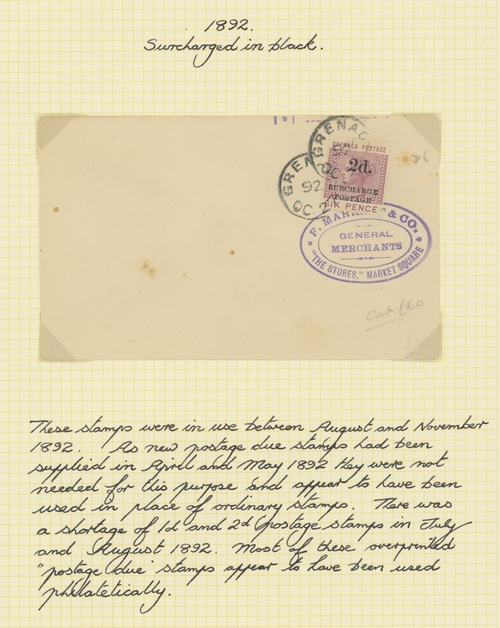 1892.
Surcharged in black.
GRENADA
GREN
92.
OC 2
GRENADA POSTAGE
2d.
SURCHARGE
POSTAGE
SIX PENCE
& CO.
GENERAL
MERCHANTS
"THE STORES," MARKET SQUARE
These stamps were in use between August and November
1892. As new postage due stamps had been
supplied in April and May 1892 they were not
needed for this purpose and appear to have been
used in place of ordinary stamps. There was
a shortage of 1d and 2d postage stamps in July
and August 1892. Most of these overprinted
"postage due" stamps appear to have been used
philatelically.